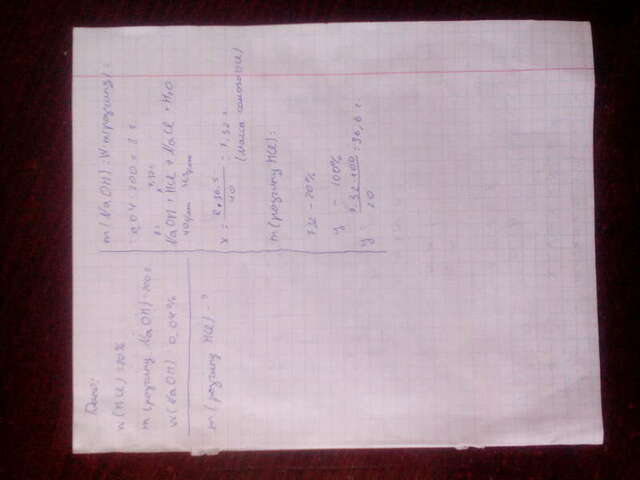 Дано:
w(HCl) = 20%
m(розчину NaOH) = 200 г
w(NaOH) 0,04%
m(розчину HCl) - ?
m(NaOH) = W·m(розчину) =
= 0,04·200 = 8 г
NaOH + HCl = NaCl + H2O
x = 8·36,5 / 40 = 7,32 г
(Масса самого HCl)
m(розчину HCl):
7,32 - 20%
y - 100%
y = 7,32·100 / 20 = 36,6 г